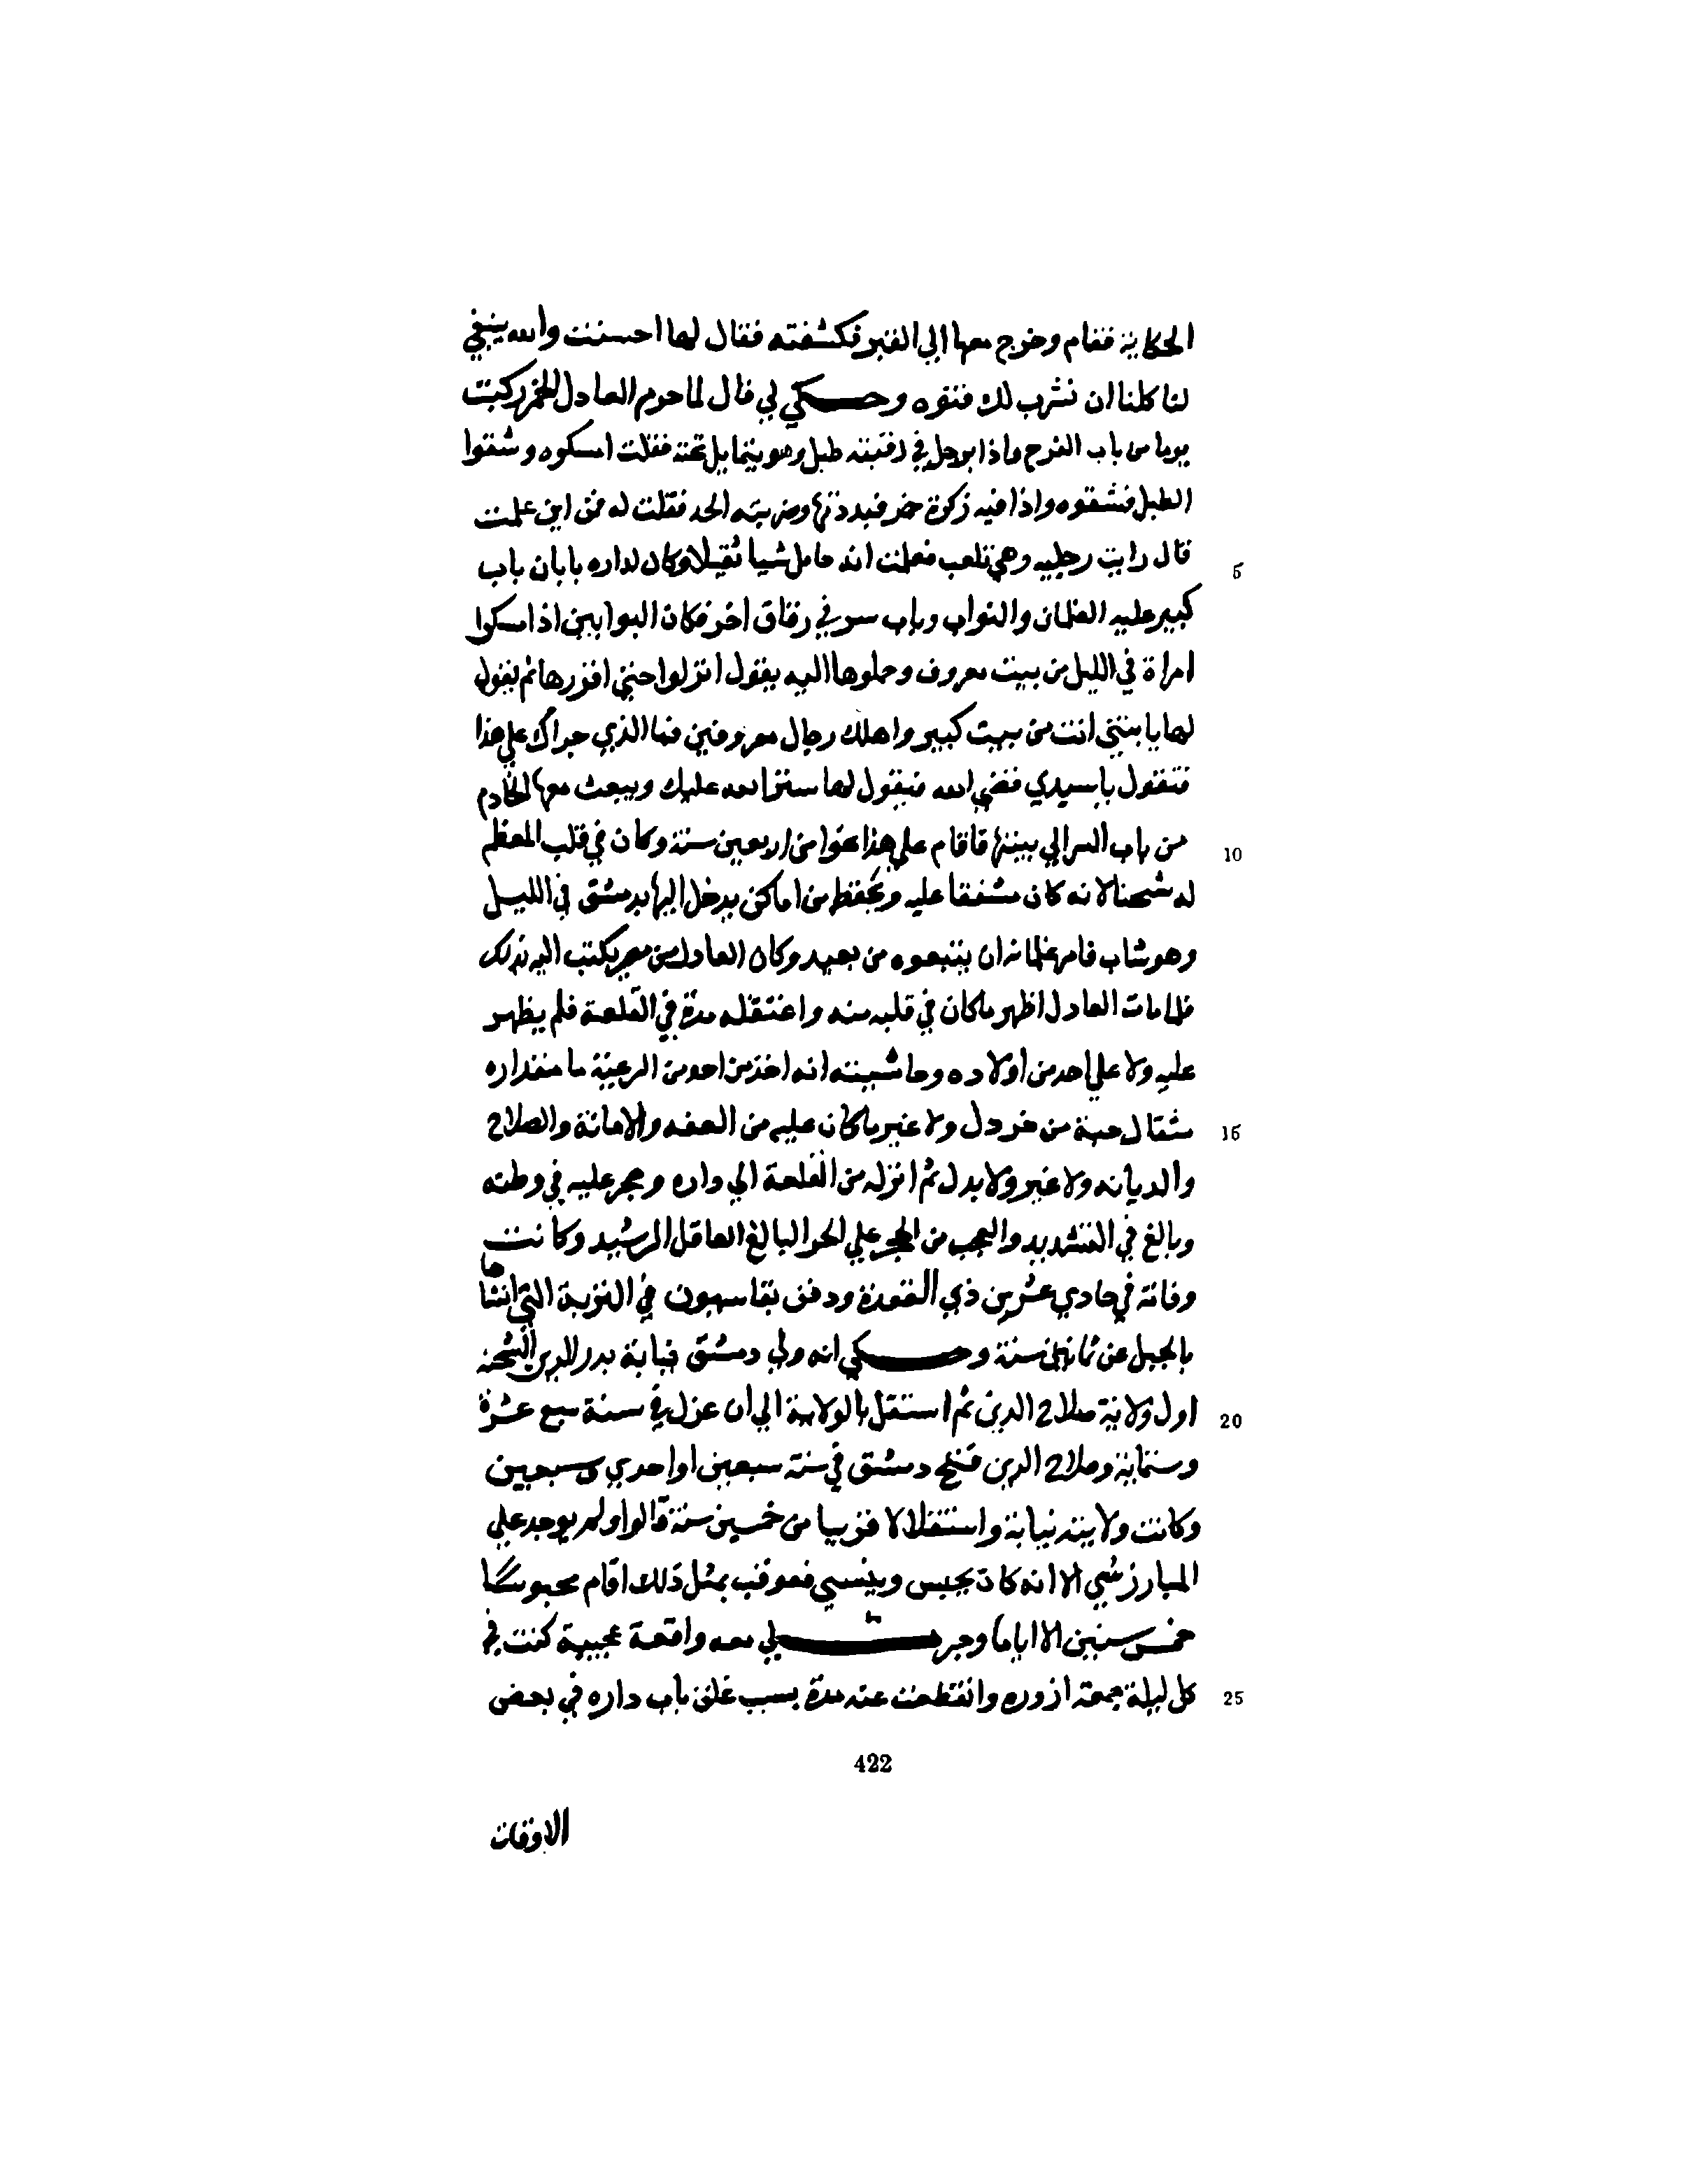 الحكاية فقام وخرج معها الي القبر فكشفته فقال لها احسنت والله ينبغي
لنا كلنا ان نشرب لك فتوه وحكي لي قال لما حرم العادل الخمر ركبت
يوما من باب الفرج واذا برجل في رقبته طبل وهو يتمايل تحته فقلت امسكوه وشقوا
الطبل فشقوه واذا فيه زكرة خمر فبددتها وضربته الحد فقلت له من اين علمت
قال رايت رجليه وهي تلعب فعلمت انه حامل شيا ثقيلا وكان لداره بابان باب
5
كبير عليه الغلمان والنواب وباب سر في زقاق اخر فكان البوابين اذا امسكوا
امراة في الليل من بيت معروف وحملوها اليه يقول انزلوا حتي اقررها ثم يقول
لها يا بنتي انت من بيت كبير واهلك رجال معروفين فما الذي جراك علي هذا
فتقول يا سيدي قضي الله فيقول لها ستر الله عليك ويبعث معها الخادم
من باب السر الي بيتها فاقام علي هذا نحوا من اربعين سنة وكان في قلب المعظم
10
له شحنا لانه كان مشفقا عليه ويحفظه من اماكن يدخل اليها بدمشق في الليل
وهو شاب فامر غلمانه ان يتبعوه من بعيد وكان العادل من مصر يكتب اليه بذلك
فلما مات العادل اظهر ما كان في قلبه منه واعتقله مدة في القلعة فلم يظهر
عليه ولا علي احد من اولاده وحاشيته انه اخذ من احد من الرعية ما مقداره
مثقال حبة من خردل ولا غير ما كان عليه من العفه والامانة والصلاح
15
والديانه ولا غير ولا بدل ثم انزله من القلعة الي داره وحجر عليه في وطنه
وبالغ في التشديد والعجب من الحجر علي الحر البالغ العاقل الرشيد وكانت
وفاته في حادي عشرين ذي القعدة ودفن بقاسيون في التربة التي انشاها
بالجبل عن ثمانين سنة وحكي انه ولي دمشق نيابة بدر الدين الشحنه
اول ولاية صلاح الدين ثم استقل بالولاية الي ان عزل في سنة سبع عشرة
20
وستماية وصلاح الدين فتح دمشق في سنة سبعين او احدي وسبعين
وكانت ولايته نيابة واستقلالا قريبا من خمسين سنة قالوا ولم يوجد علي
المبارز شي الا انه كان يحبس وينسي فعوقب بمثل ذلك اقام محبوسا
خمس سنين الا اياما وجرت لي معه واقعة عجيبة كنت في
كل ليلة جمعة ازوره وانقطعت عنه مدة بسبب غلق باب داره في بعض
25
422
الاوقات